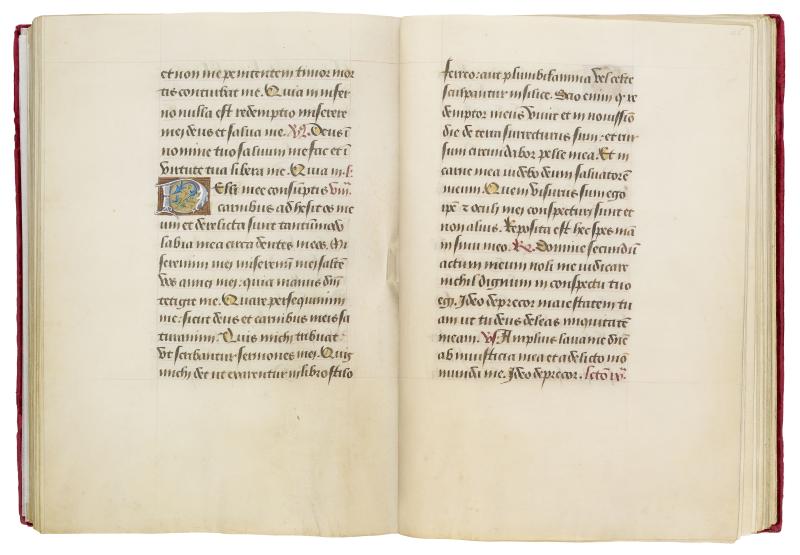 et non me penitentem timor mor
tis conturbat me. Quia in infer
no nulla est redemptio miserere
mei deus et salua me. V. Deus ī
nomine tuo saluum me fac et ī
virtute tua libera me. Quia in. l.
Pelli mee consūptis viij.
carnibus adhesit os me
um et derelicta sunt tantūmodo
labia mea circa dentes meos. Mi
seremini mei miseremī mei saltē
vos amici mei: quia manus dn̄i
tetigit me. Quare persequimini
me: sicut deus et carnibus meis sa
turamini: Quis michi tribuat
vt scribantur sermones mei. Quis
michi det ut exarentur in libro stilo
ferreo: aut plumbi lamina vel celte
sculpantur in silice. Scio enim q re
demptor meus viuit et in nouissīo
die de terra surrecturus sum: et rur
sum circumdabor pelle mea. Et in
carne mea videbo deum saluatorē
meum. Quem visurus sum ego
ip̄e ⁊ oculi mei conspecturi sunt et
non alius. Reposita est hec spes mā
in sinu meo. R. Domine secundū
actum meum noli me iudicare
nichil dignum in conspectu tuo
egi. Ideo deprecor maiestatem tu
am ut tu deus deleas iniquitatē
meam. Vs. Amplius laua me dn̄e
ab iniusticia mea et a delicto meo
munda me. Ideo deprecor. lctō ix.